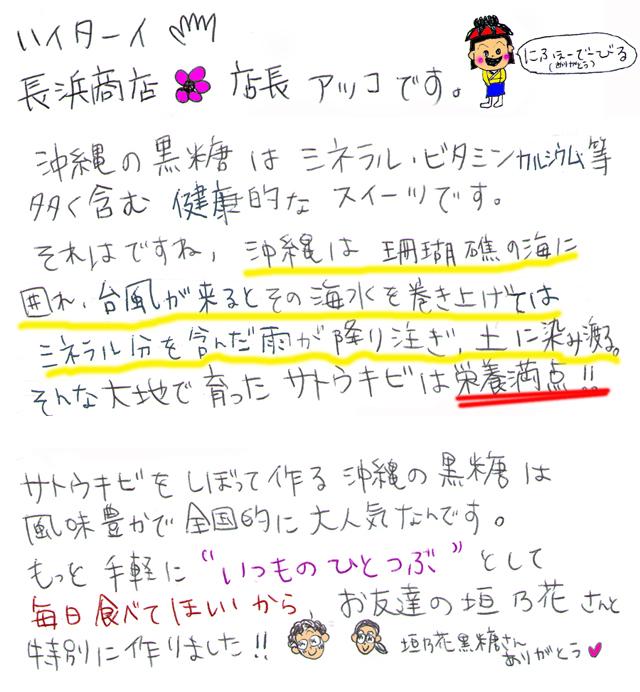 ハイターイ
にふぇーでーびる
(ありがとう)
長浜商店 店長 アツコです。
沖縄の黒糖はミネラル・ビタミンカルシウム等
多く含む 健康的な スイーツです。
それはですね、沖縄は 珊瑚礁の海に
囲れ、台風が来るとその海水を巻き上げては
ミネラル分を含んだ雨が降り注ぎ、土に染み渡る。
そんな大地で育ったサトウキビは栄養満点!!
サトウキビをしぼって作る沖縄の黒糖は
風味豊かで全国的に大人気なんです。
もっと手軽に“いつものひとつぶ”として
毎日食べてほしいから、お友達の垣乃花さんと
特別に作りました!!
垣乃花黒糖さん
ありがとう